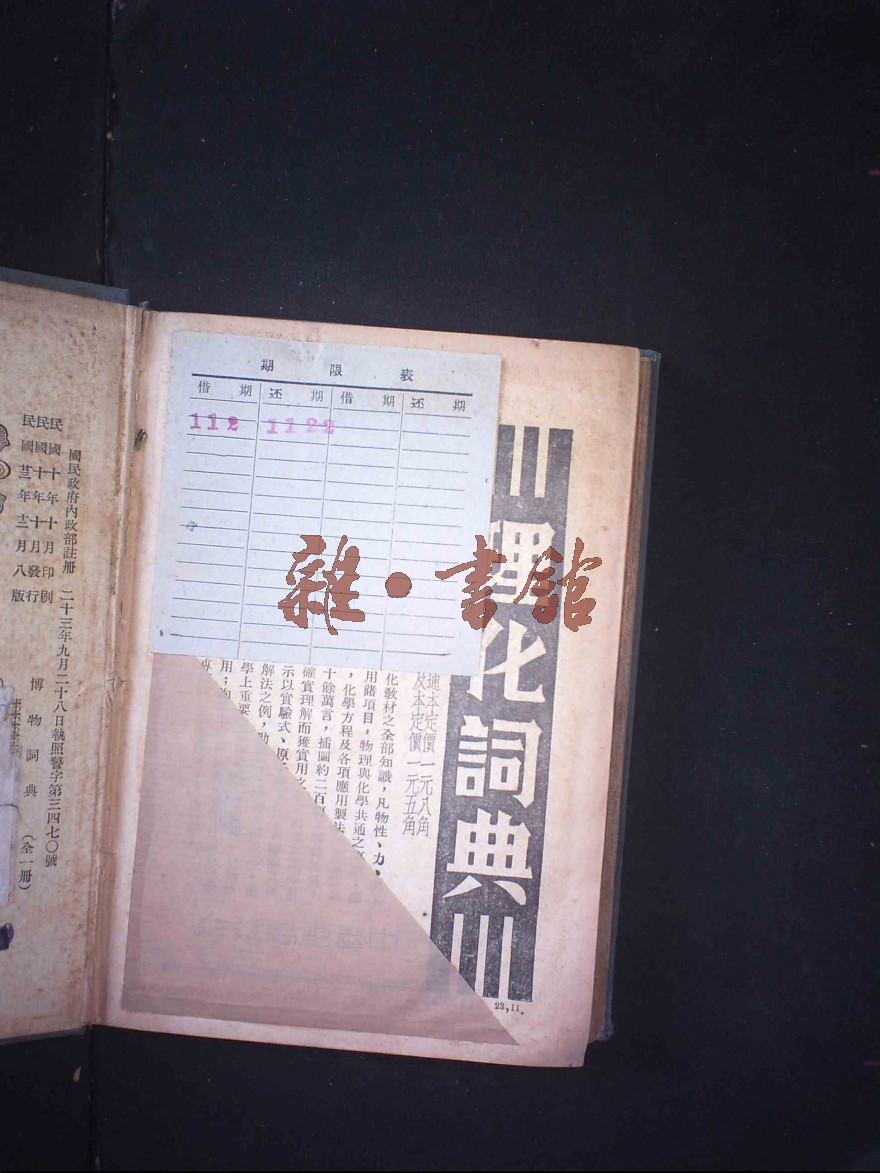 期限表
借期 还期 借期 还期
112 1122
雜·書館
理化詞典
布面本定價一元八角
及本定價一元五角
化教材之全部知識，凡物性、力、
用諸項目，物理與化學共通之
，化學方程及各項應用製法
十餘萬言，插圖約二百
確實理解而獲實用之
示以實驗式、原
解法之例，助
學上重要
用；
23,11.
國民政府內政部註册 二十三年九月二十八日執照警字第三四七〇號
民國十年十月印刷
民國十年十月發行
民國廿三年十二月八版
博物詞典 （全一册）